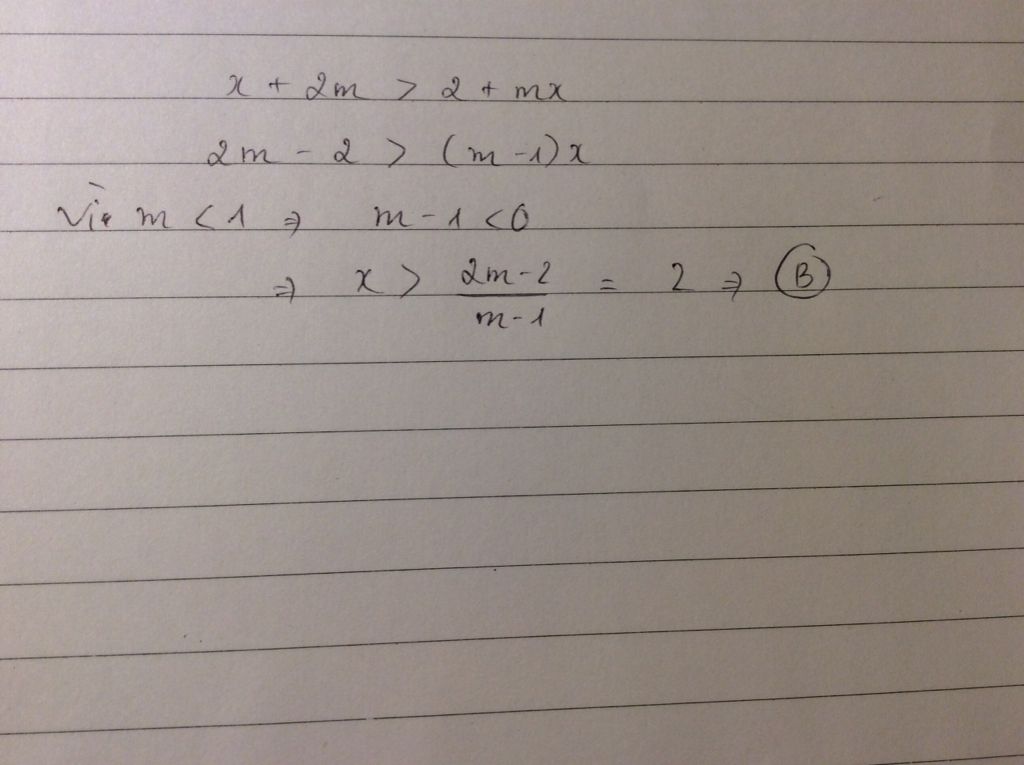 x + 2m > 2 + mx
2m - 2 > (m - 1)x
Vì m < 1 ⇒ m - 1 < 0
⇒ x > \frac{2m - 2}{m - 1} = 2 ⇒ B